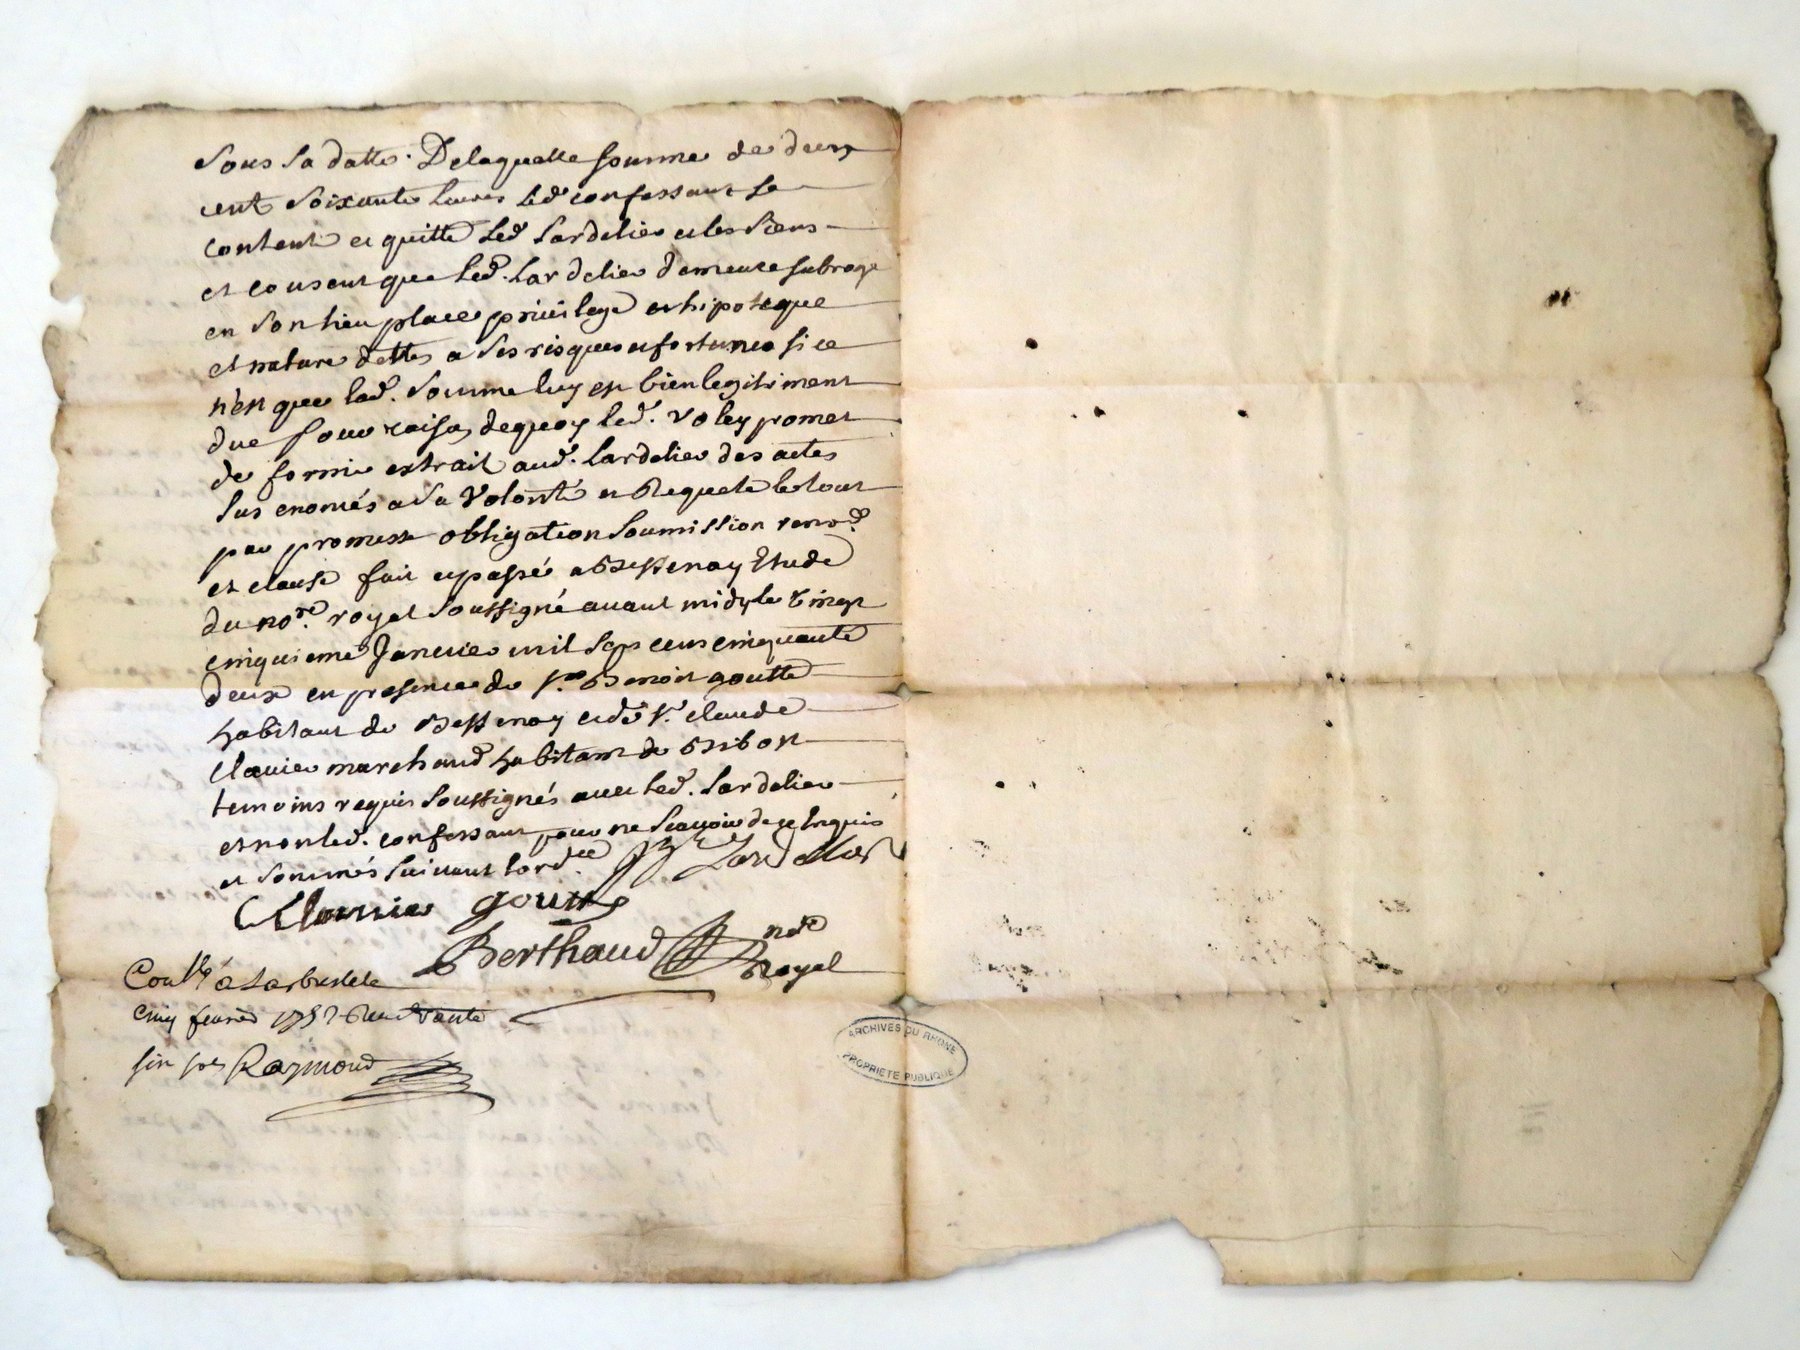 sous sa datte. Delaquelle somme de deux
cent soixante livres led confessant se
content et quitte led Lardelier et les siens
et consent que led. Lardelier demeure subrogé
en son lieu place privilege et hipoteque
et nature dettes a ses risques et fortunes si ce
n'est que lad. somme luy est bien legitiment
due pour raison dequoy led. Voley promet
de fornir extrait aud. Lardelier des actes
sus enomés a sa volonté et Requete le tout
par promesse obligation soumission renon.
et clause fait et passé a Bessenay Etude
du no.re royal soussigné avant midy le vingt
cinquieme Janvier mil sept cent cinquante
deux en presence de s.r Benoit goutte
habitant de Bessenay et de s.r claude
Clavier marchand habitant de Bibost
temoins requis soussignés avec led. Lardelier
et non led. confessant pour ne sçavoir de ce Enquis
et sommés suivant lord.ce Lardellier
Clavier goutte
Berthaud no.re
Royal
Con.llé a Larbresle le
cinq fevrier 1752 Reçu
Raymond
ARCHIVES DU RHONE
PROPRIETE PUBLIQUE